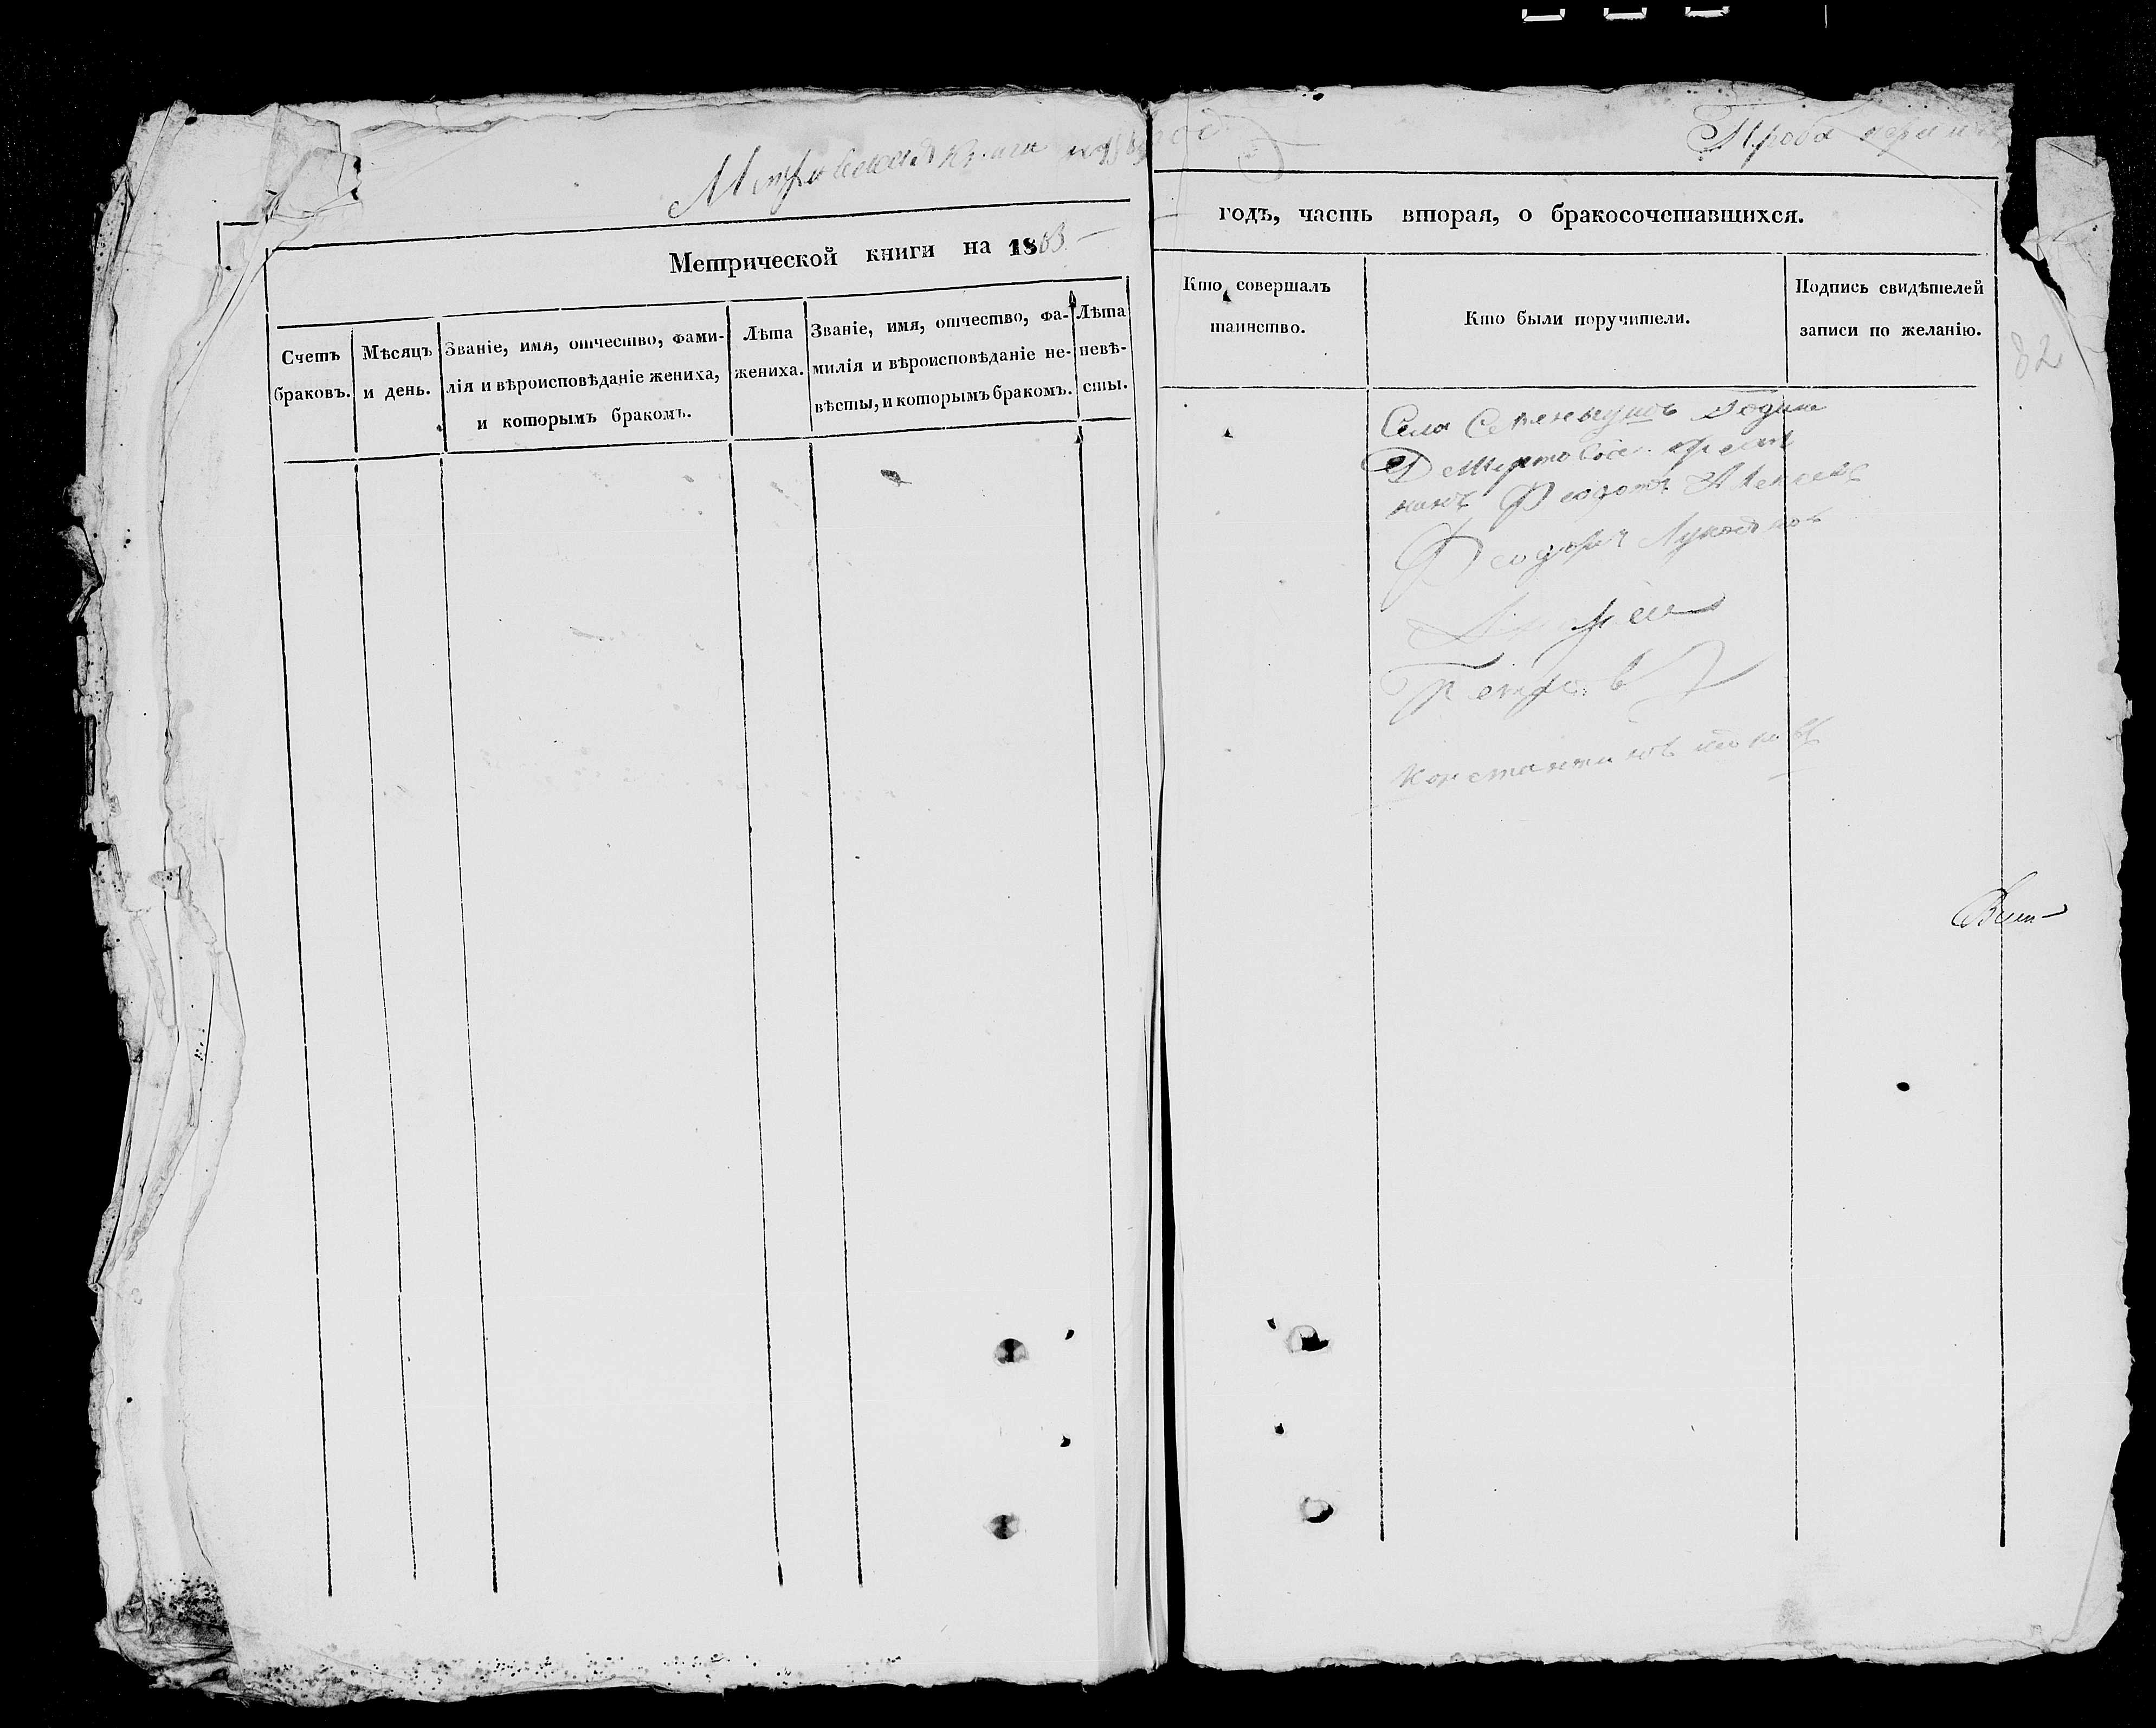 Метрическая книга на 1863 год
Проба чернил
Метрической книги на 1863
годъ, часть вторая, о бракосочетавшихся.
Счетъ браковъ.
Мѣсяцъ и день.
Званіе, имя, отчество, фами-
лія и вѣроисповѣданіе жениха,
и которымъ бракомъ.
Лѣта
жениха.
Званіе, имя, отчество, фа-
милія и вѣроисповѣданіе не-
вѣсты, и которымъ бракомъ.
Лѣта
невѣ-
сты.
Кто совершалъ
таинство.
Кто были поручители.
Подпись свидѣтелей
записи по желанію.
82
Села
крестья
нинъ Феодотъ Алексеевъ
Феодоръ Лукояновъ
Петровъ
Константинъ